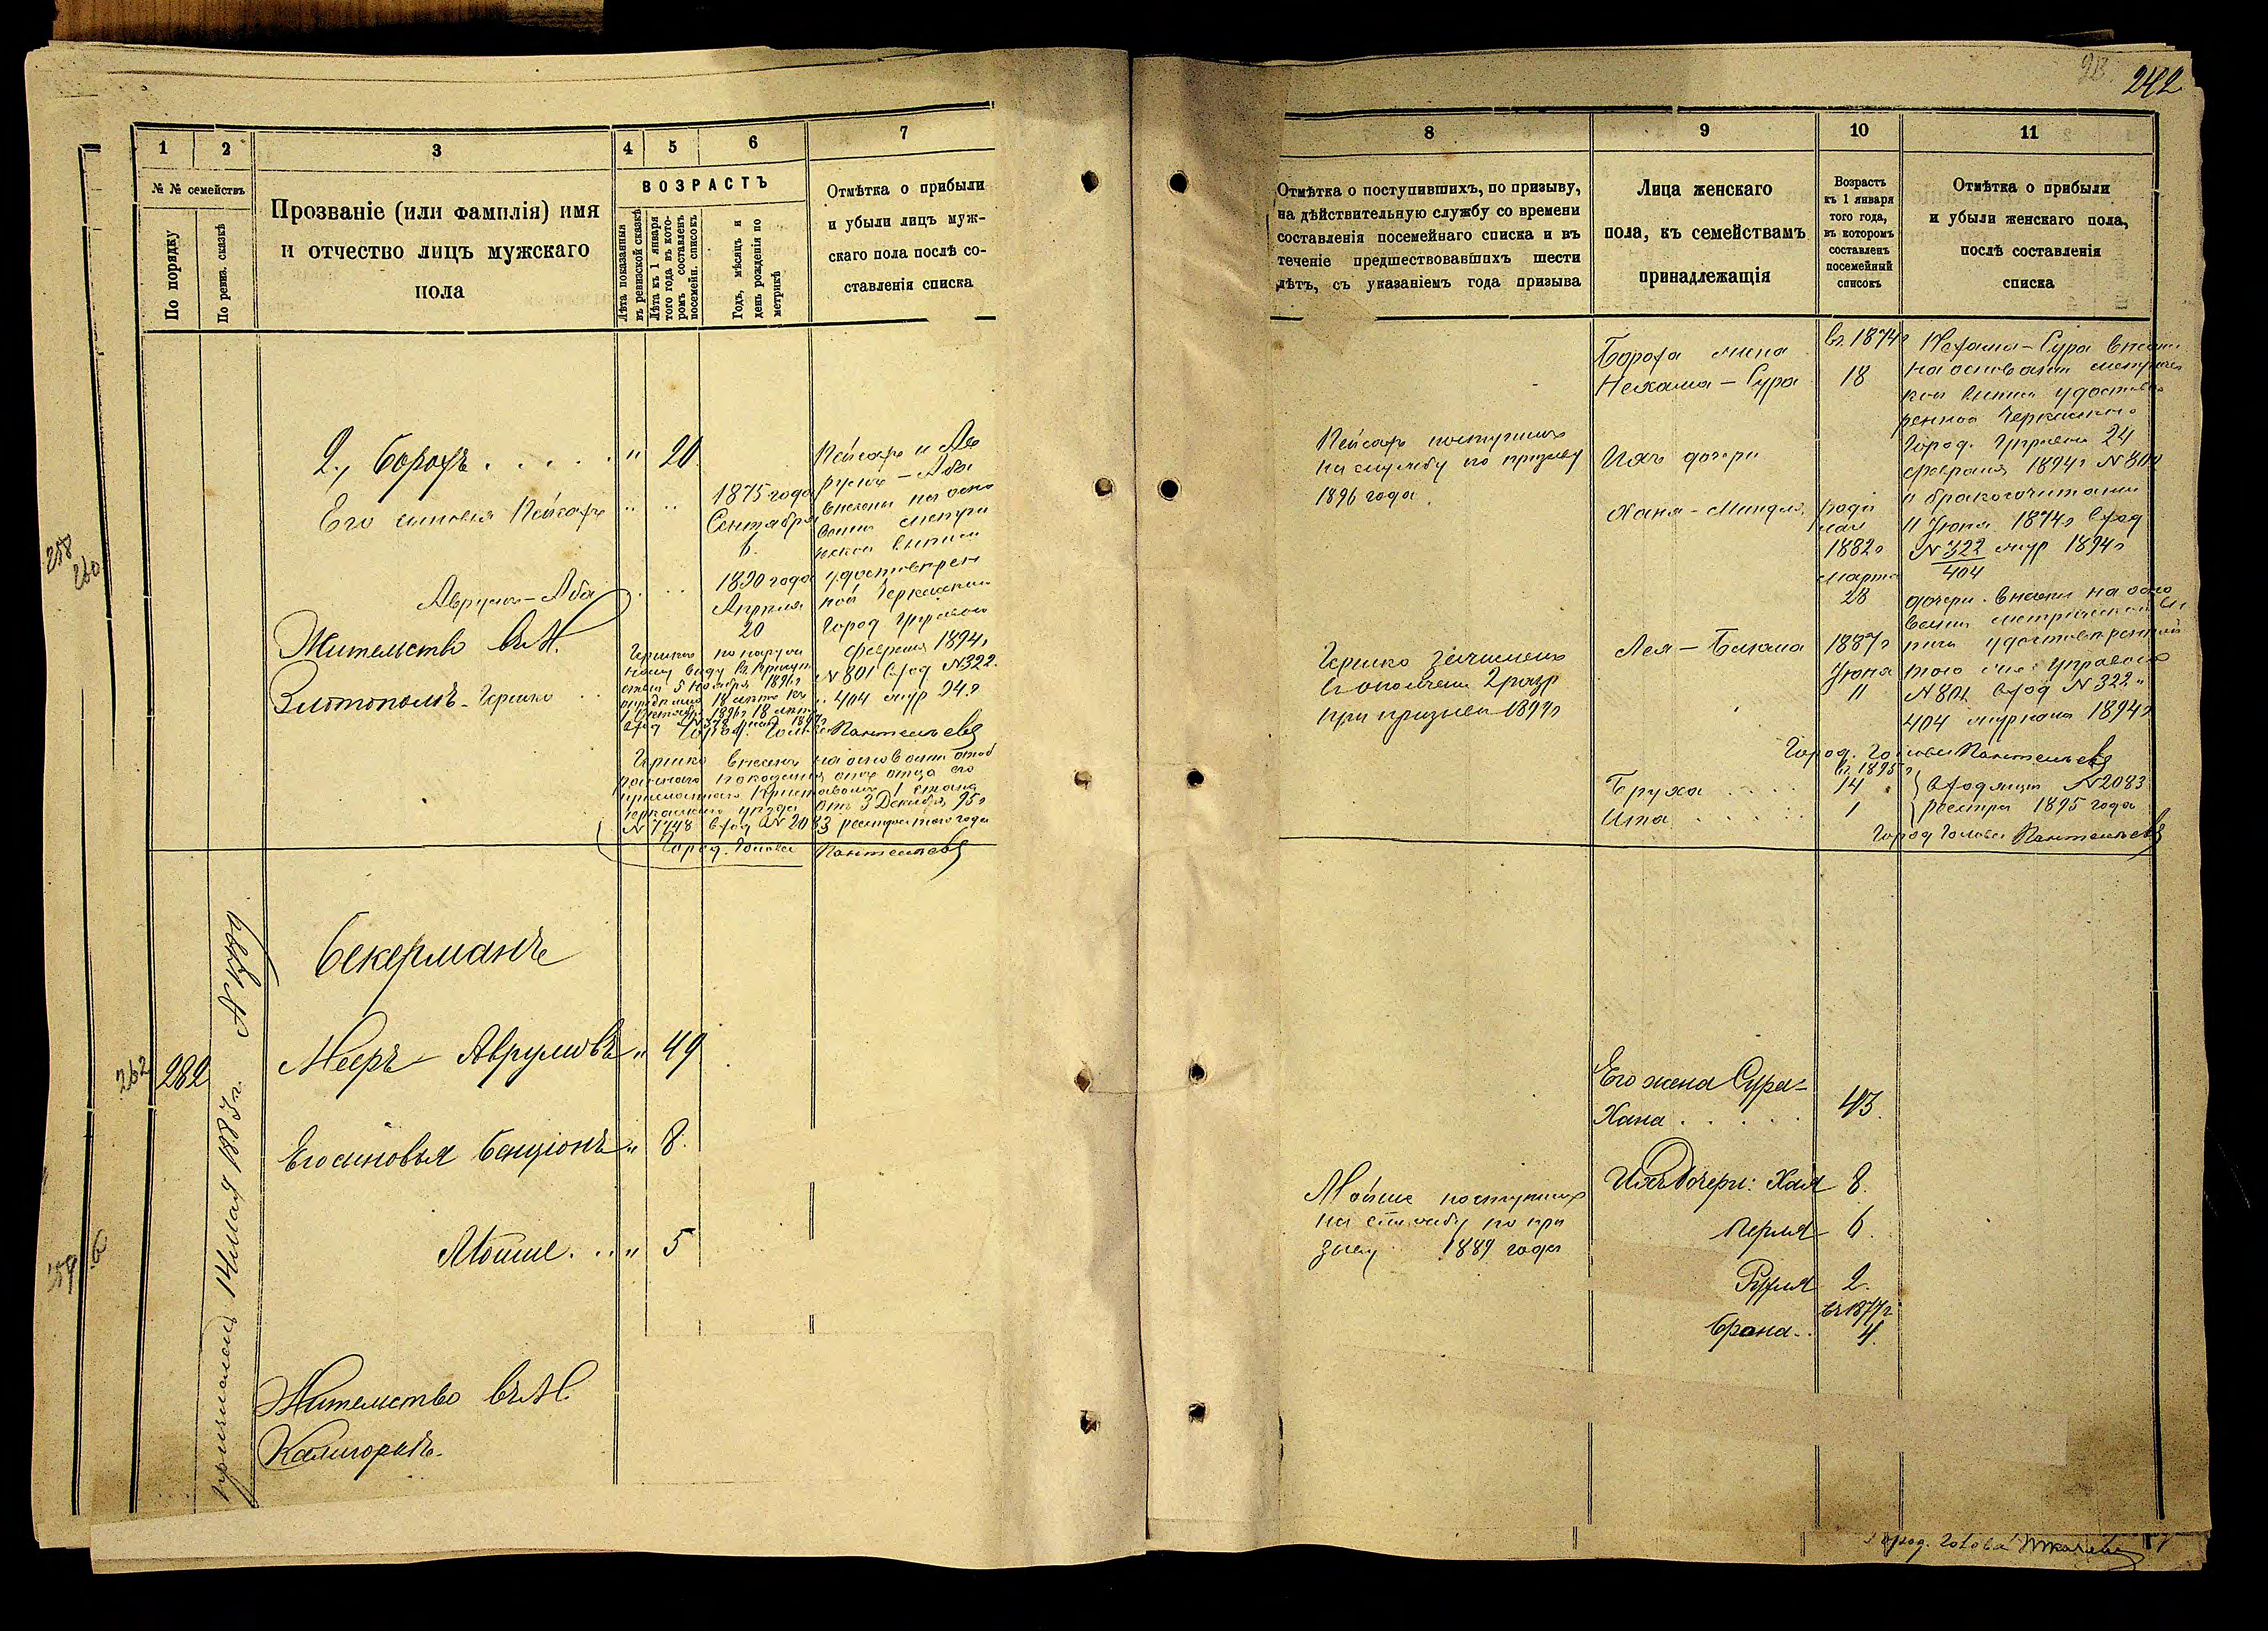 242
1
2
3
4
5
6
7
№ № семействъ
По порядку
По ревиз. сказкѣ
Прозваніе (или фамилія) имя
и отчество лицъ мужскаго
пола
ВОЗРАСТЪ
Лѣта показанныя
въ ревизской сказкѣ
Лѣта къ 1 января
того года въ кото-
ромъ составленъ
посемейн. списокъ
Годъ, мѣсяцъ и
день рожденія по
метрикѣ
Отмѣтка о прибыли
и убыли лицъ муж-
скаго пола послѣ со-
ставленія списка
258
260
2., Борохъ . . . . . " 20
Его сыновья Пейсахъ " "
1875 года
Сентября
6.
Аврумъ-Аба . . .
1890 года
Апрѣля
20
Жительство въ М.
Златополѣ - Гершко . .
Пейсахъ и Ав
румъ - Аба
внесены на осно
ваніи метри
ческой выписи
удостовѣрен
ной Черкасской
Город Управою
февраля 1894 г
№ 801 вход № 322.
404 жур 94 г
Пантелѣевъ
Гершко внесенъ на основаніи
отъ 3 Декабря 95 г
№ 7748 вход № 2083 реестра того года
Город. Голова Пантелѣевъ
262
282
причисленъ 14 мая 1883 г. №
Бекерманъ
Мееръ - Аврумовъ " 49
Его сыновья Бенціонъ " 8.
Мошие. . . " 5
Жительство въ М.
Калигоркѣ.
8
9
10
11
Отмѣтка о поступившихъ, по призыву,
на дѣйствительную службу со времени
составленія посемейнаго списка и въ
теченіе предшествовавшихъ шести
лѣтъ, съ указаніемъ года призыва
Лица женскаго
пола, къ семействамъ
принадлежащія
Возрастъ
къ 1 января
того года,
въ которомъ
составленъ
посемейный
списокъ
Отмѣтка о прибыли
и убыли женскаго пола,
послѣ составленія
списка
Бороха жена
Нехама - Сура
въ 1874 г
18
Нехама - Сура внесена
на основаніи метричес
кой выписи удостовѣ
ренной Черкасскою
Город. Управою 24
февраля 1894 г № 801
о бракосочетаніи
11 Іюня 1874 г вход
№ 322 жур 1894 г
404
Пейсахъ поступилъ
на службу по призыву
1896 года.
Ихъ дочери
Хана - Миндля,
роди
лась
1882 г
Марта
28
дочери внесены на осно
ваніи метрической вы
писи удостовѣренной
тою же Управою
№ 801 вход № 322 "
404 журнала 1894 г
Лея - Бейла
1887 г
Іюня
11
Гершко зачисленъ
въ ополченіе 2 разр
при призывѣ 1897 г
Город. Голова Пантелѣевъ
въ 1895 г
Бруха . . . . 14
Ита . . . . . . 1
входящій № 2083
реестра 1895 года
Город Голова Пантелѣевъ
Его жена Сура-
Хана . . . . . 43.
Ихъ дочери: Хая 8.
Перля 6.
Рухля 2.
въ 1877 г
Брана . . 4.
Мойше поступилъ
на службу по при
зыву 1889 года
Город. Голова